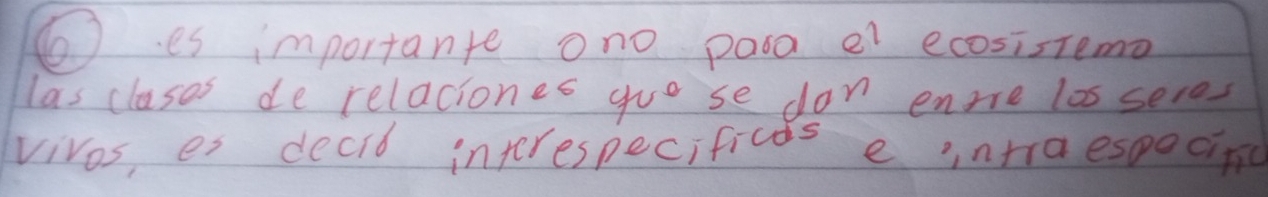 ⑥ .es importante ono para el ecosistema
las clases de relaciones que se dan entre los seres
vivos, es decir interespecificas e intraespecific